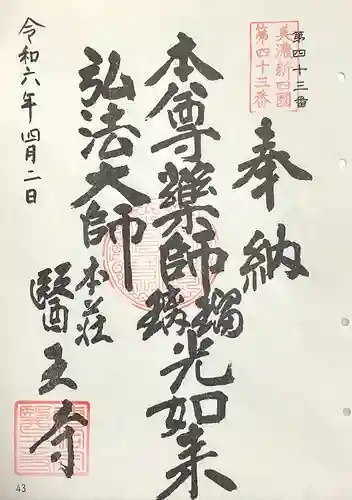 美濃新四國
第四十三番
第四十三番
奉納
本尊薬師瑠璃光如来
弘法大師
本荘
醫王寺
令和六年四月二日
43